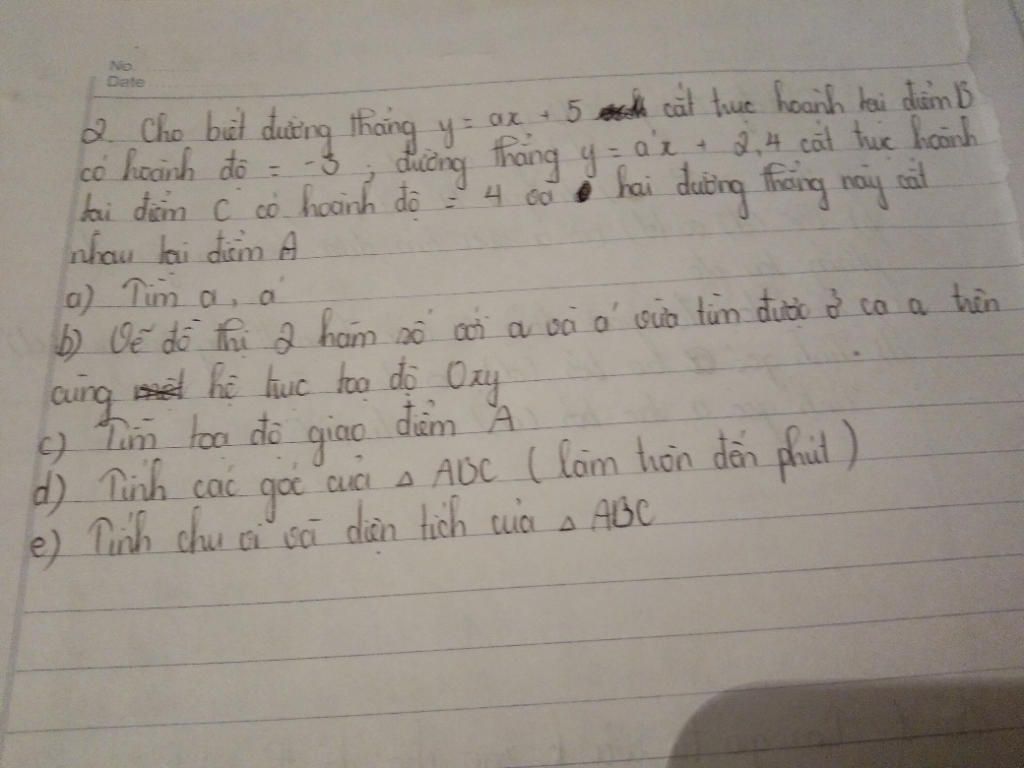 No.
Date
2. Cho biết đường thẳng y = ax + 5 cắt trục hoành tại điểm B
có hoành độ = -3 ; đường thẳng y = a'x + 2,4 cắt trục hoành
tại điểm C có hoành độ = 4 và hai đường thẳng này cắt
nhau tại điểm A
a) Tìm a, a'
b) Vẽ đồ thị 2 hàm số với a và a' vừa tìm được ở câu a trên
cùng hệ trục toạ độ Oxy
c) Tìm toạ độ giao điểm A
d) Tính các góc của △ ABC (làm tròn đến phút)
e) Tính chu vi và diện tích của △ ABC